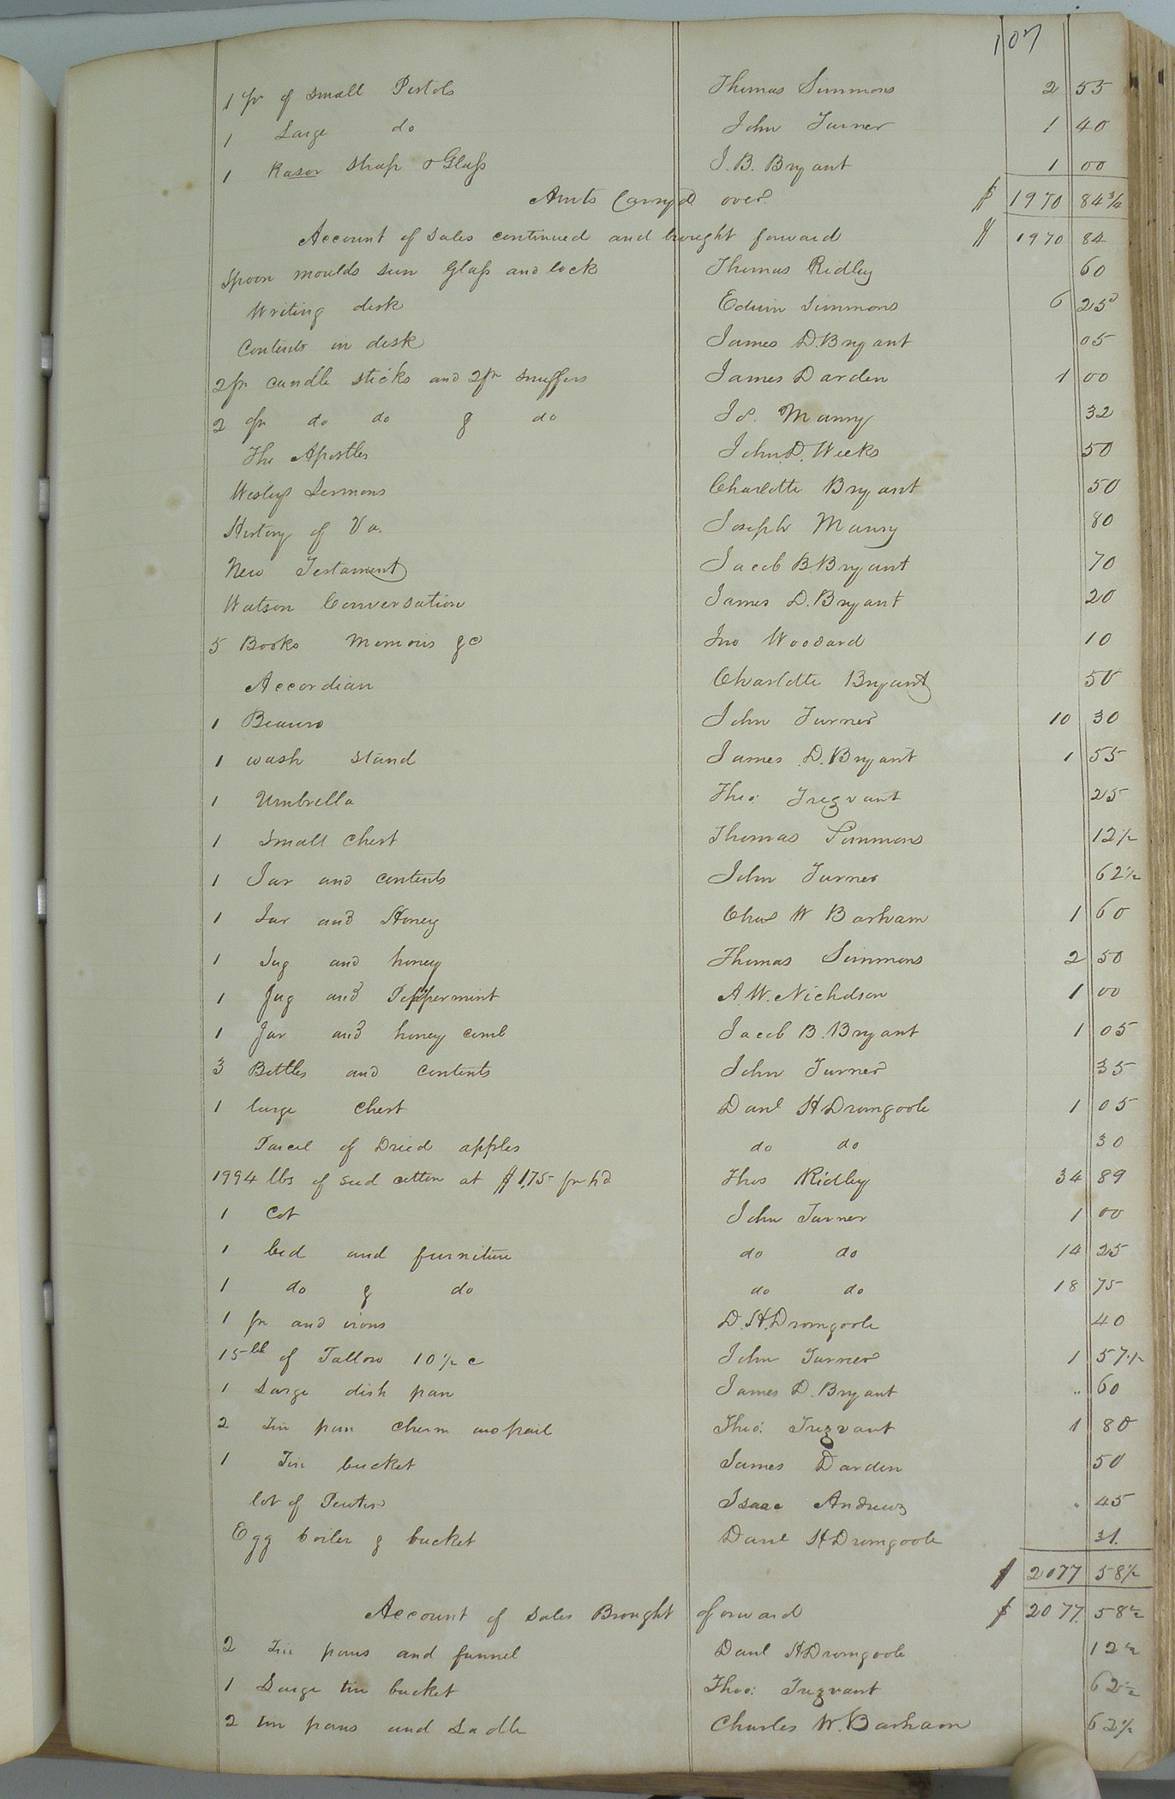 107
1 pr of small Pistols Thomas Simmons 2 55
1 Large do John Turner 1 40
1 Rasor strap & Glass J. B. Bryant 1 00
Amts Carryd over $ 1970 84 3/4
Account of Sales continued and brought forward $ 1970 84
Spoon moulds sun Glass and lock Thomas Ridley 60
Writing desk Edwin Simmons 6 25
Contents in desk James D. Bryant 05
2 pr candle sticks and 2 pr snuffers James Darden 1 00
2 pr do do & do Jos. Manry 32
The Apostles John D. Weeks 50
Wesleys Sermons Charlotte Bryant 50
History of Va. Joseph Manry 80
New Testament Jacob B Bryant 70
Watson Conversation James D. Bryant 20
5 Books Memoirs &c Jno Woodard 10
Accordian Charlotte Bryant 50
1 Beauro John Turner 10 30
1 wash stand James D. Bryant 1 55
1 Umbrella Theo: Trezvant 25
1 Small chest Thomas Simmons 12 1/2
1 Jar and contents John Turner 62 1/2
1 Jar and Honey Chas W Barham 1 60
1 Jug and honey Thomas Simmons 2 50
1 Jug and Peppermint A. W. Nicholson 1 00
1 Jar and honey comb Jacob B. Bryant 1 05
3 Bottles and contents John Turner 35
1 large chest Danl H Dromgoole 1 05
Parcel of Dried apples do do 30
1994 lbs of seed cotton at $1.75 pr hd Thos Ridley 34 89
1 Cot John Turner 1 00
1 bed and furniture do do 14 25
1 do & do do do 18 75
1 pr and irons D. H. Dromgoole 40
15 lb of Tallow 10 1/2 c John Turner 1 57 1/2
1 Large dish pan James D. Bryant .. 60
2 Tin pan churn and pail Theo: Trezvant 1 80
1 Tin bucket James Darden 50
lot of Pewter Isaac Andrews . 45
Egg boiler & bucket Danl H Dromgoole 31.
$ 2077 58 1/2
Account of Sales Brought forward $ 2077. 58 1/2
2 Tin pans and funnel Danl H Dromgoole 12 1/2
1 Large tin bucket Theo: Trezvant 62 1/2
2 tin pans and Ladle Charles W. Barham 62 1/2